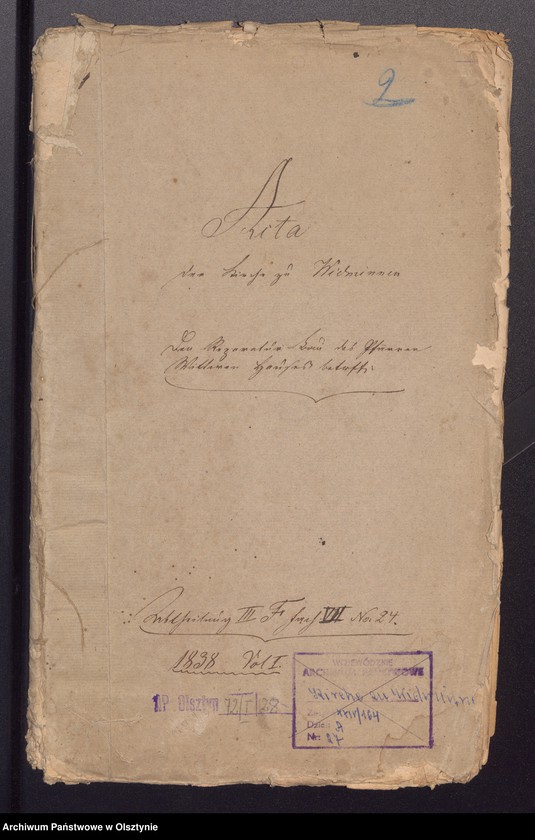 2
Acta
der Kirche zu Widminnen
Den Reparatur Bau des Pfarrer
Wittwen Hauses betreff:
Abtheilung III Fach VII No. 24.
1838 Vol I.
AP Olsztyn 1721/I/28
WOJEWÓDZKIE
ARCHIWUM PAŃSTWOWE
Kirche zu Widminnen
XIV/164
Dział: A
Nr: 27
Archiwum Państwowe w Olsztynie
Archiwum Państwowe w Olsztynie